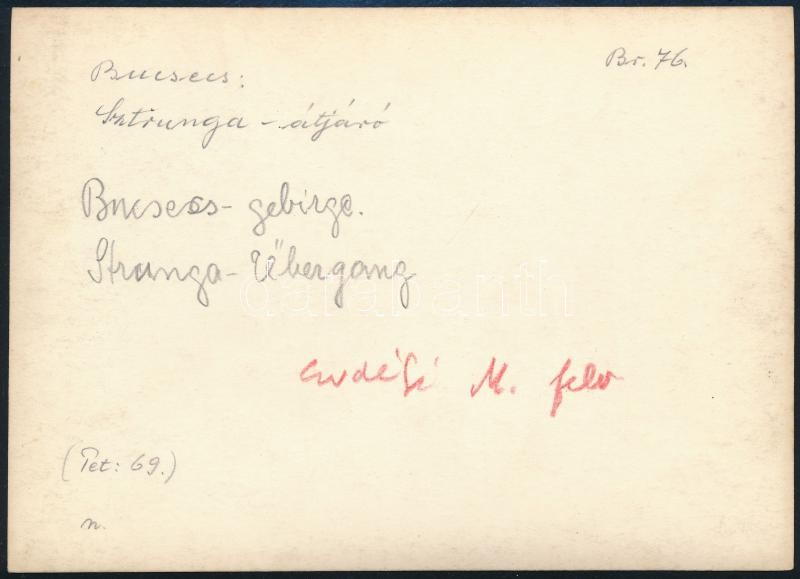 Br. 76.
Bucsecs:
Sztrunga - átjáró
Bucsecs - gebirge.
Strunga - Übergang
darabanth
erdélyi M. felv
(Tet: 69.)
n.